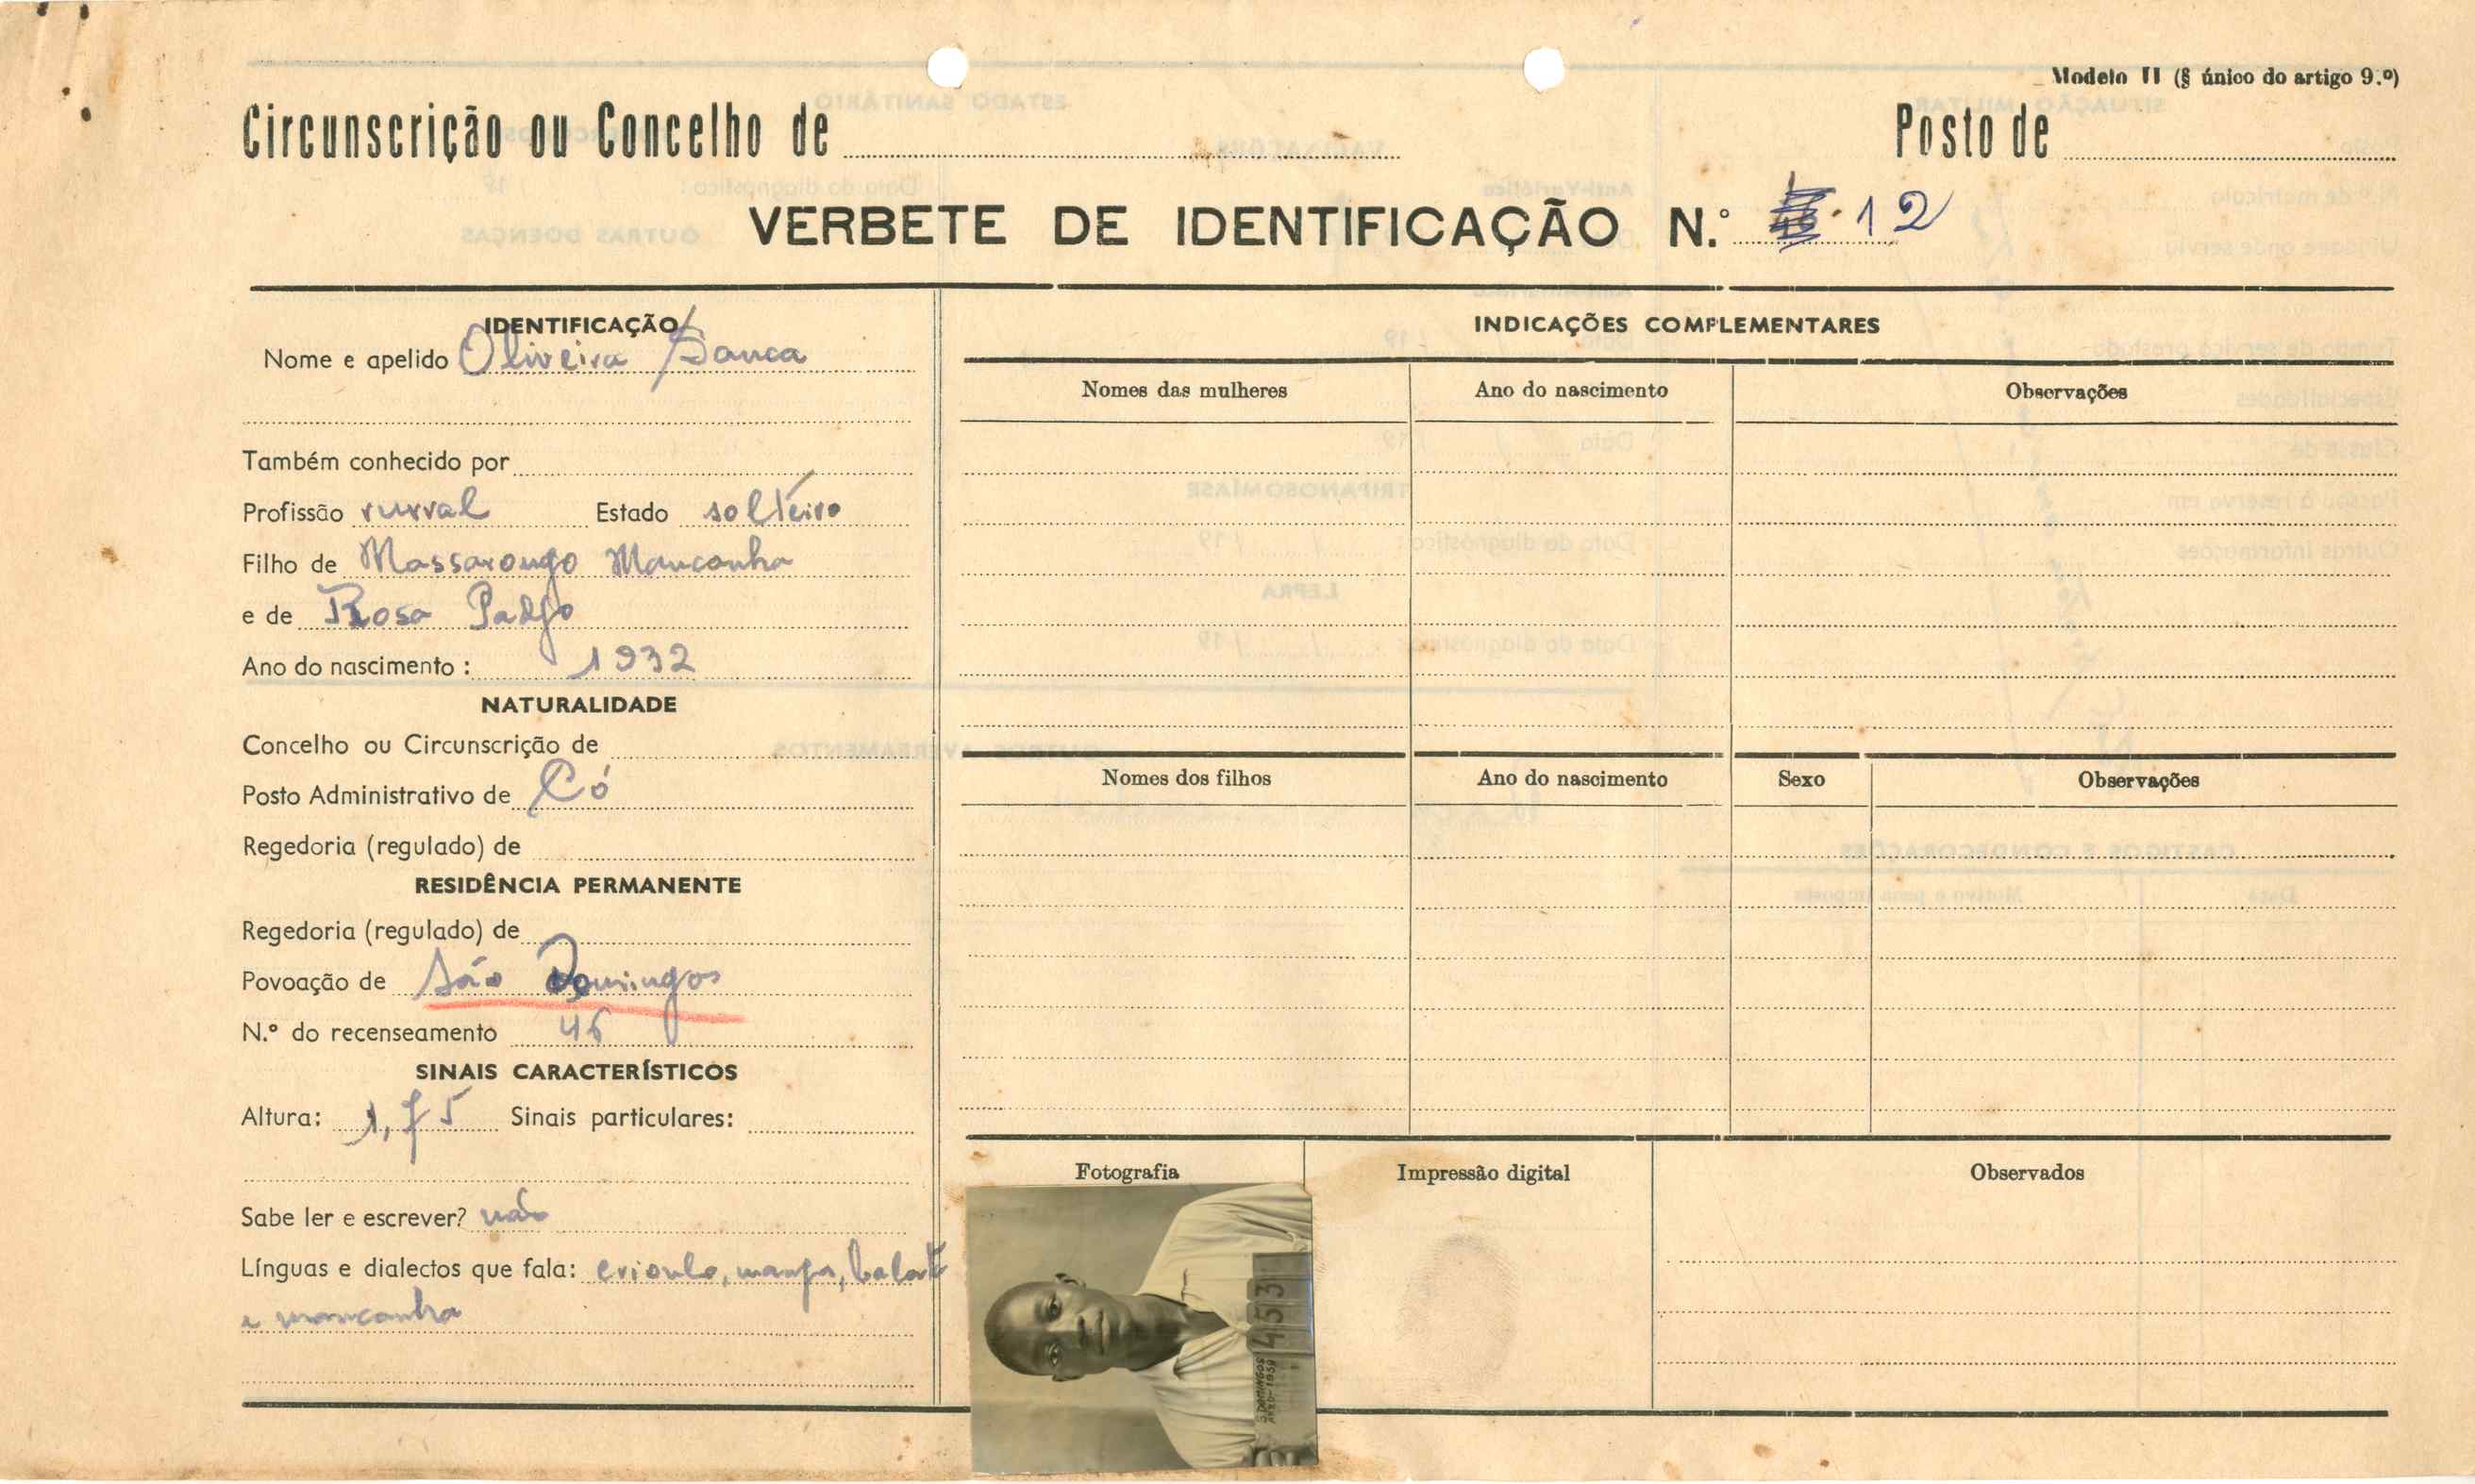 Modelo II (§ único do artigo 9.º)
Circunscrição ou Concelho de
Posto de
VERBETE DE IDENTIFICAÇÃO N.º 12
IDENTIFICAÇÃO
Nome e apelido Oliveira Sanca
Também conhecido por
Profissão rurral Estado solteiro
Filho de Massarongo Mancanha
e de Rosa
Ano do nascimento: 1932
NATURALIDADE
Concelho ou Circunscrição de
Posto Administrativo de Có
Regedoria (regulado) de
RESIDÊNCIA PERMANENTE
Regedoria (regulado) de
Povoação de São Domingos
N.º do recenseamento
SINAIS CARACTERÍSTICOS
Altura: 1,75 Sinais particulares:
Sabe ler e escrever? não
Línguas e dialectos que fala: crioulo,
e mancanha
INDICAÇÕES COMPLEMENTARES
Nomes das mulheres Ano do nascimento Observações
Nomes dos filhos Ano do nascimento Sexo Observações
Fotografia Impressão digital Observados
S. DOMINGOS
453